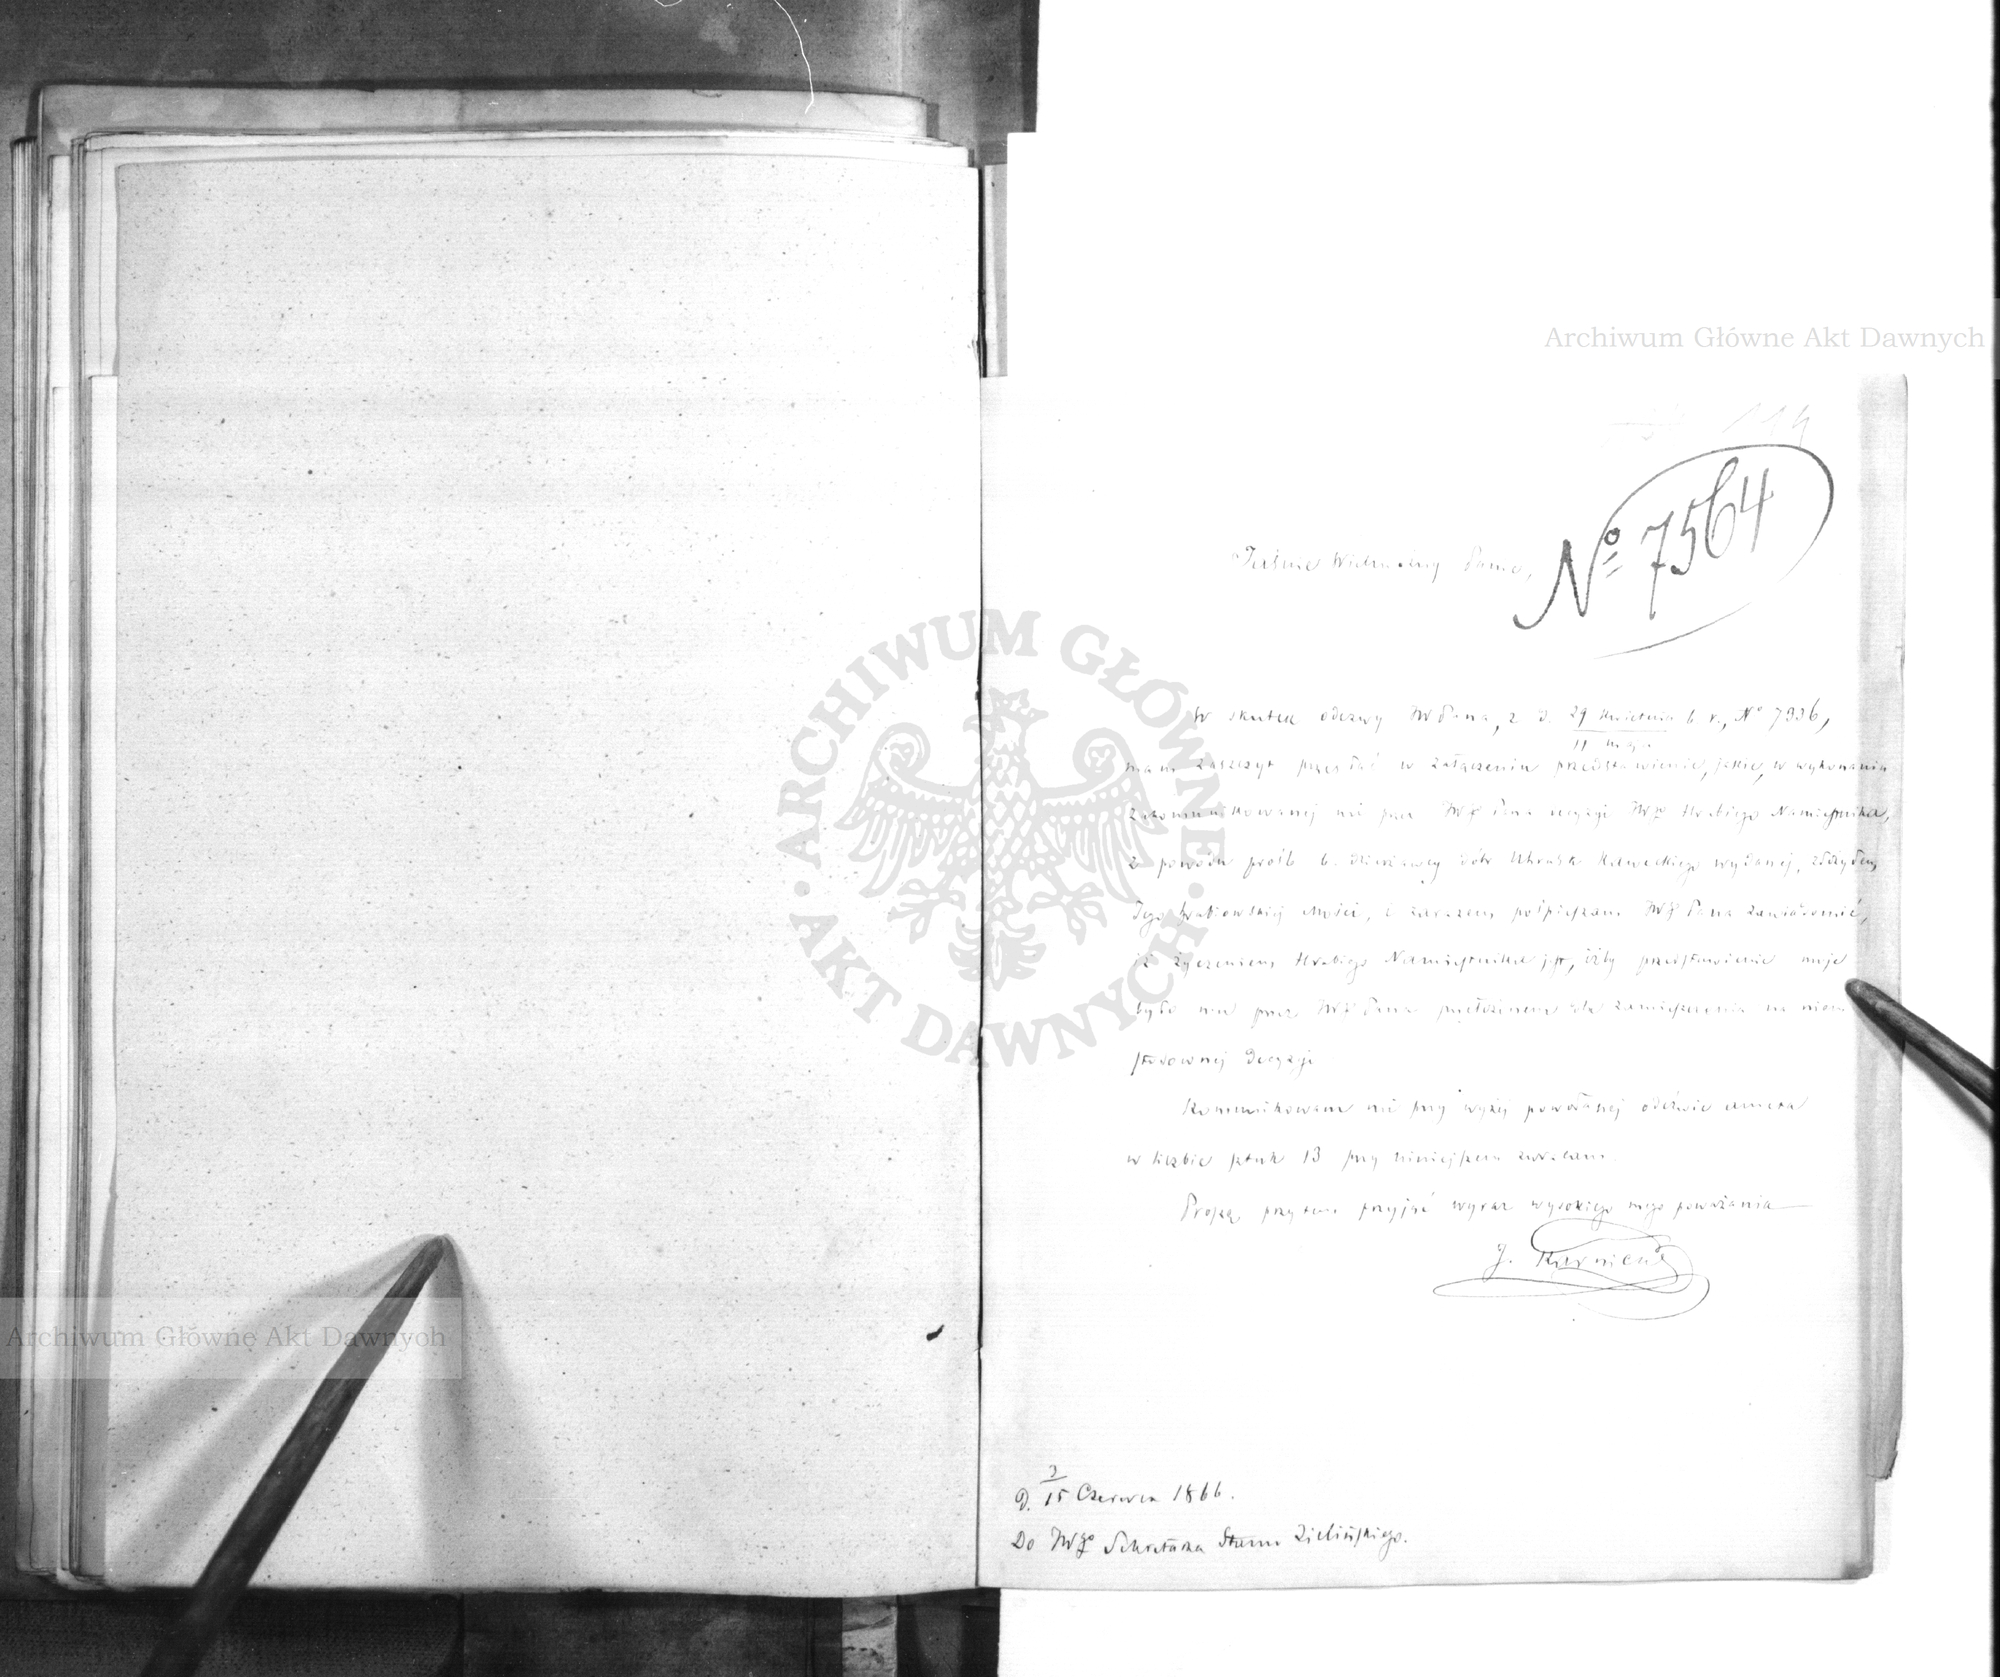 Archiwum Główne Akt Dawnych
114
Nº 7564
Jaśnie Wielmożny Panie,
W skutku odezwy JW Pana, z d. 29 Kwietnia b. r., Nº 7936,
11 maja
mam zaszczyt przesłać w załączeniu przedstawienie, jakie, w wykonaniu
zakomunikowanej mi przez JW Pana decyzji JW Hrabiego Namiestnika,
z powodu prośb b. dzierżawcy dóbr Uhrusk wydanej, złożyłem
Jego Hrabiowskiej Mości, i zarazem pośpieszam JW Pana zawiadomić,
iż życzeniem Hrabiego Namiestnika jest, iżby przedstawienie moje
było mu przez JW Pana przedłożone dla zamieszczenia na niem
stosownej decyzji
Komunikowane mi przy wyżej powołanej odezwie annexa
w liczbie sztuk 13 przy niniejszem zwracam.
Proszę przytem przyjąć wyraz wysokiego mego poważania
J. Karnicki
D. 3/15 Czerwca 1866.
Do JWgo Sekretarza Stanu Zielińskiego.
ARCHIWUM GŁÓWNE
AKT DAWNYCH
Archiwum Główne Akt Dawnych